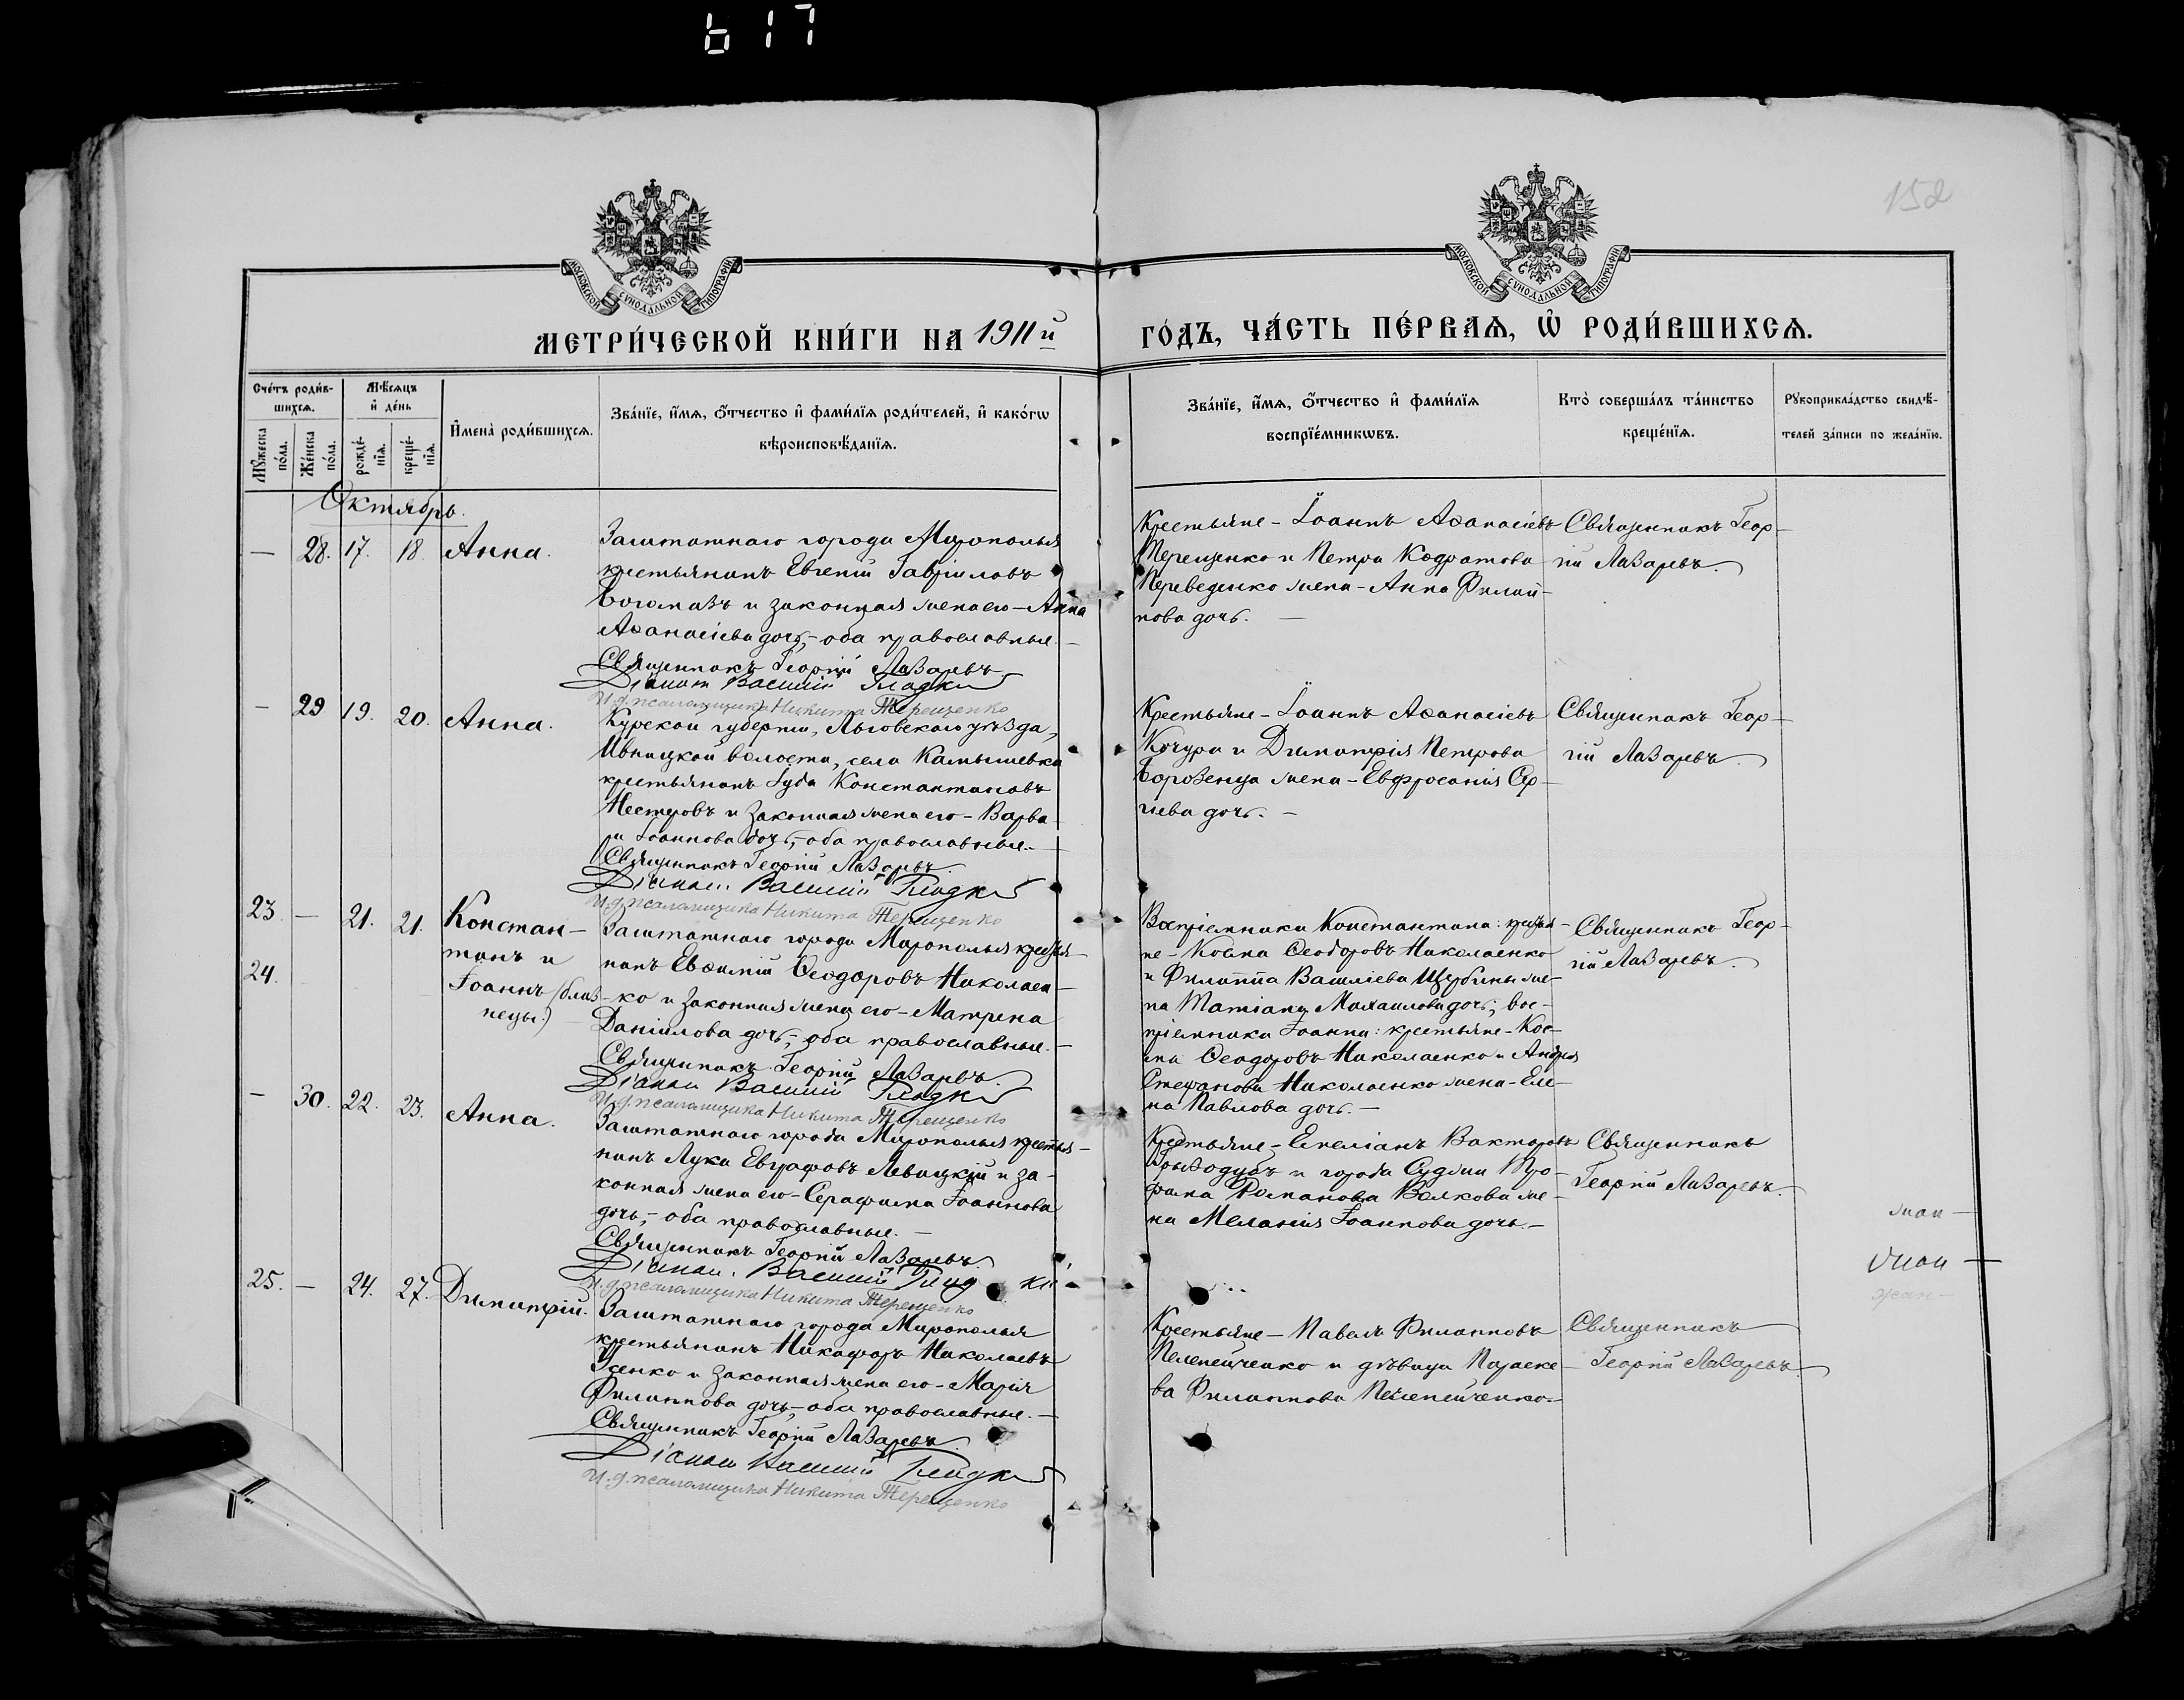 617
152
МОСКОВСКОЙ СѴНОДАЛЬНОЙ ТИПОГРАФІИ
МОСКОВСКОЙ СѴНОДАЛЬНОЙ ТИПОГРАФІИ
МЕТРИ́ЧЕСКОЙ КНИ́ГИ НА 1911 й
ГО́ДЪ, ЧА́СТЬ ПЕ́РВАѦ, Ѡ҆ РОДИ́ВШИХСѦ.
Сче́тъ роди́в-
шихсѧ.
Мꙋ́жеска по́ла.
Же́нска по́ла.
Мѣ́сѧцъ
и҆ де́нь
рожде́-
нїѧ.
креще́-
нїѧ.
И҆мена̀ роди́вшихсѧ.
Зва́нїе, и҆́мѧ, ѻ҆́тчество и҆ фами́лїѧ роди́телей, и҆ како́гѡ
вѣроисповѣ́данїѧ.
Зва́нїе, и҆́мѧ, ѻ҆́тчество и҆ фами́лїѧ
воспрїе́мникѡвъ.
Кто̀ соверша́лъ та́инство
креще́нїѧ.
Рꙋкоприкла́дство свидѣ́-
телей за́писи по жела́нїю.
Октябрь.
— 28. 17. 18. Анна.
Заштатнаго города Мирополья
крестьянинъ Евгеній Гавріиловъ
Богомазъ и законная жена его – Анна
Аѳанасіева дочь, – оба православные. –
Священникъ Георгій Лазаревъ
Діаконъ Василій Гладкій
И.д. псаломщика Никита Терещенко
Крестьяне – Іоаннъ Аѳанасіевъ
Терещенко и Петра Кодратова
Переведенко жена – Анна Филип-
пова дочь. –
Священникъ Геор-
гій Лазаревъ.
— 29 19. 20. Анна.
Курской губерніи, Льговскаго уѣзда,
Ивницкой волости, села Камышевки
крестьянинъ Іуда Константиновъ
Нестеровъ и законная жена его – Варва-
ра Іоаннова дочь, – оба православные. –
Священникъ Георгій Лазаревъ
Діаконъ Василій Гладкій
И.д. псаломщика Никита Терещенко
Крестьяне – Іоаннъ Аѳанасіевъ
Кочура и Димитрія Петрова
Борозенца жена – Евфросинія Сер-
гіева дочь. –
Священникъ Геор-
гій Лазаревъ.
23. — 21. 21. Констан-
тинъ и
24.
Іоаннъ (близ-
нецы.)
Заштатнаго города Мирополья крестья-
нинъ Евѳимій Ѳеодоровъ Николаен-
ко и законная жена его – Матрена
Даніилова дочь, – оба православные. –
Священникъ Георгій Лазаревъ.
Діаконъ Василій Гладкій
И.д. псаломщика Никита Терещенко
Воспріемники Константина: крестья-
не – Косма Ѳеодоровъ Николаенко
и Филиппа Василіева Щербины же-
на Татіана Михаилова дочь; вос-
пріемники Іоанна: крестьяне – Кос-
ма Ѳеодоровъ Николаенко и Андрея
Стефанова Николаенко жена – Еле-
на Павлова дочь. –
Священникъ Геор-
гій Лазаревъ.
— 30. 22. 23. Анна.
Заштатнаго города Мирополья крестья-
нинъ Лука Евграфовъ Левицкій и за-
конная жена его – Серафима Іоаннова
дочь, – оба православные. –
Священникъ Георгій Лазаревъ.
Діаконъ Василій Гладкій
И.д. псаломщика Никита Терещенко
Крестьяне – Емеліанъ Викторовъ
и города Суджи Тро-
фима Романова Волкова же-
на Меланія Іоаннова дочь. –
Священникъ
Георгій Лазаревъ.
25. — 24. 27. Димитрій.
Заштатнаго города Мирополья
крестьянинъ Никифоръ Николаевъ
Усенко и законная жена его – Марія
Филиппова дочь, – оба православные. –
Священникъ Георгій Лазаревъ
Діаконъ Василій Гладкій
И.д. псаломщика Никита Терещенко
Крестьяне – Павелъ Филипповъ
Пелепейченко и дѣвица Параске-
ва Филиппова Пелепейченко. –
Священникъ
Георгій Лазаревъ.